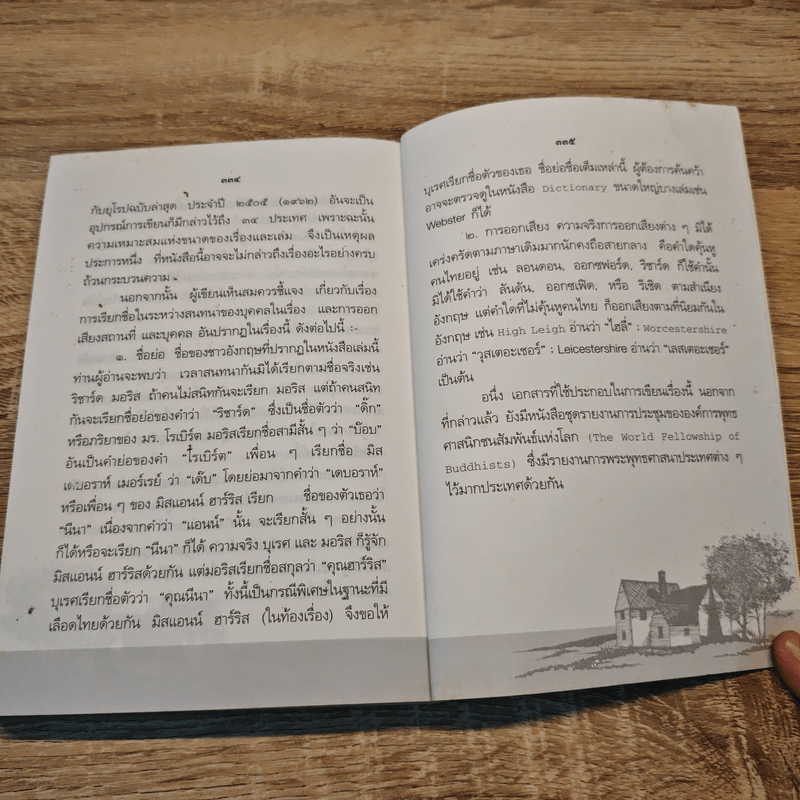 ๓๓๔
กับยุโรปฉบับล่าสุด ประจำปี ๒๕๐๕ (๑๙๖๒) อันจะเป็น
อุปกรณ์การเขียนก็มีกล่าวไว้ถึง ๓๔ ประเทศ เพราะฉะนั้น
ความเหมาะสมแห่งขนาดของเรื่องและเล่ม จึงเป็นเหตุผล
ประการหนึ่ง ที่หนังสือนี้อาจจะไม่กล่าวถึงเรื่องอะไรอย่างครบ
ถ้วนกระบวนความ
นอกจากนั้น ผู้เขียนเห็นสมควรชี้แจง เกี่ยวกับเรื่อง
การเรียกชื่อในระหว่างสนทนาของบุคคลในเรื่อง และการออก
เสียงสถานที่ และบุคคล อันปรากฏในเรื่องนี้ ดังต่อไปนี้ :-
๑. ชื่อย่อ ชื่อของชาวอังกฤษที่ปรากฏในหนังสือเล่มนี้
ท่านผู้อ่านจะพบว่า เวลาสนทนากันมิได้เรียกตามชื่อจริงเช่น
ริชาร์ด มอริส ถ้าคนไม่สนิทกันจะเรียก มอริส แต่ถ้าคนสนิท
กันจะเรียกชื่อย่อของคำว่า “ริชาร์ด” ซึ่งเป็นชื่อตัวว่า “ดิ๊ก”
หรือภริยาของ มร. โรเบิร์ต มอริสเรียกชื่อสามีสั้น ๆ ว่า “บ๊อบ”
อันเป็นคำย่อของคำ “โรเบิร์ต” เพื่อน ๆ เรียกชื่อ มิส
เดบอราห์ เมอร์เรย์ ว่า “เด๊บ” โดยย่อมาจากคำว่า “เดบอราห์”
หรือเพื่อน ๆ ของ มิสแอนน์ ฮาร์ริส เรียก ชื่อของตัวเธอว่า
“นีนา” เนื่องจากคำว่า “แอนน์” นั้น จะเรียกสั้น ๆ อย่างนั้น
ก็ได้หรือจะเรียก “นีนา” ก็ได้ ความจริง บุเรศ และ มอริส ก็รู้จัก
มิสแอนน์ ฮาร์ริสด้วยกัน แต่มอริสเรียกชื่อสกุลว่า “คุณฮาร์ริส”
บุเรศเรียกชื่อตัวว่า “คุณนีนา” ทั้งนี้เป็นกรณีพิเศษในฐานะที่มี
เลือดไทยด้วยกัน มิสแอนน์ ฮาร์ริส (ในท้องเรื่อง) จึงขอให้
๓๓๕
บุเรศเรียกชื่อตัวของเธอ ชื่อย่อชื่อเต็มเหล่านี้ ผู้ต้องการค้นคว้า
อาจจะตรวจดูในหนังสือ Dictionary ขนาดใหญ่บางเล่มเช่น
Webster ก็ได้
๒. การออกเสียง ความจริงการออกเสียงต่าง ๆ มิได้
เคร่งครัดตามภาษาเดิมมากนักคงถือสายกลาง คือคำใดคุ้นหู
คนไทยอยู่ เช่น ลอนดอน, ออกซฟอร์ด, ริชาร์ด ก็ใช้คำนั้น
มิได้ใช้คำว่า ลันดัน, ออกซเฟิด, หรือ ริเชิด ตามสำเนียง
อังกฤษ แต่คำใดที่ไม่คุ้นหูคนไทย ก็ออกเสียงตามที่นิยมกันใน
อังกฤษ เช่น High Leigh อ่านว่า “ไฮลี” : Worcestershire
อ่านว่า “วุสเตอะเชอร์” : Leicestershire อ่านว่า “เลสเตอะเชอร์”
เป็นต้น
อนึ่ง เอกสารที่ใช้ประกอบในการเขียนเรื่องนี้ นอกจาก
ที่กล่าวแล้ว ยังมีหนังสือชุดรายงานการประชุมขององค์การพุทธ
ศาสนิกชนสัมพันธ์แห่งโลก (The World Fellowship of
Buddhists) ซึ่งมีรายงานการพระพุทธศาสนาประเทศต่าง ๆ
ไว้มากประเทศด้วยกัน